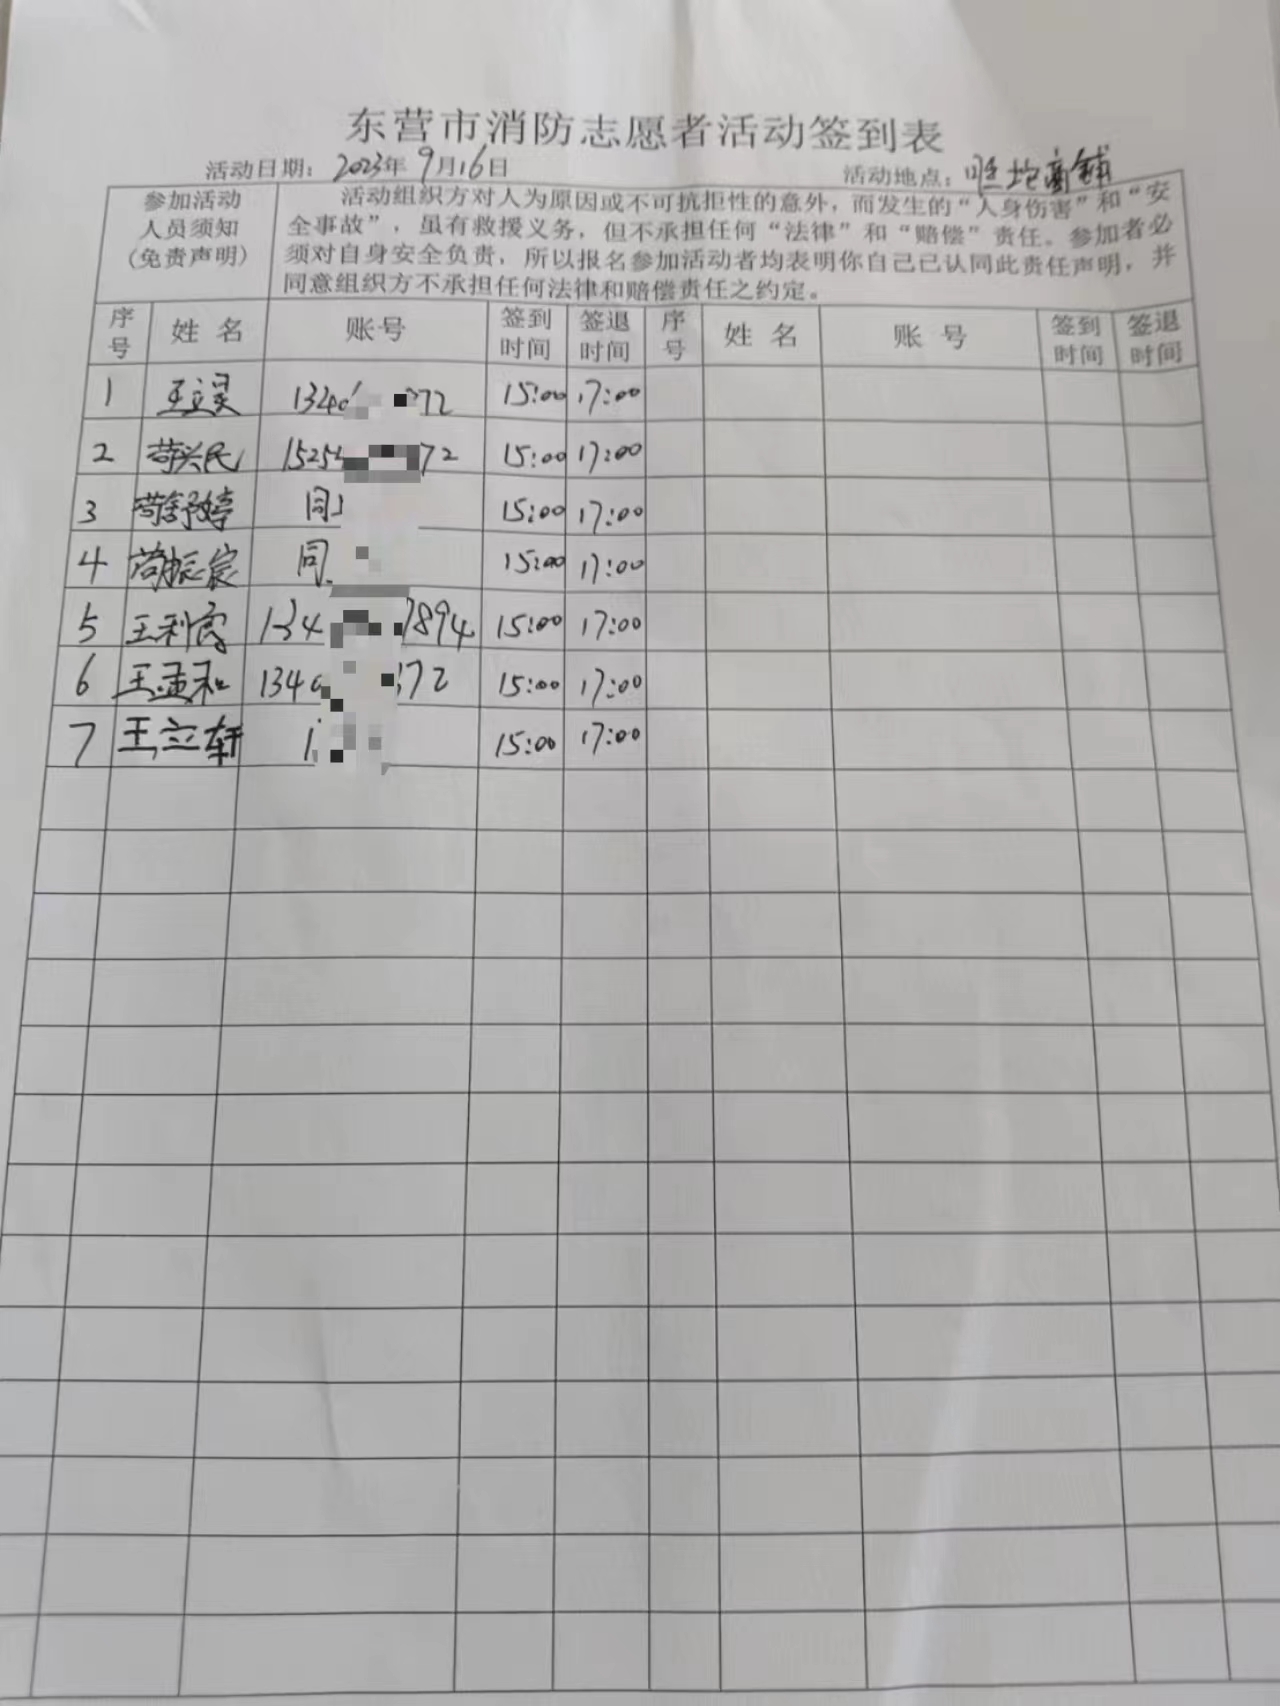 东营市消防志愿者活动签到表
活动日期：2023年9月16日 活动地点：商铺
参加活动
人员须知
(免责声明)
活动组织方对人为原因或不可抗拒性的意外，而发生的“人身伤害”和“安
全事故”，虽有救援义务，但不承担任何“法律”和“赔偿”责任。参加者必
须对自身安全负责，所以报名参加活动者均表明你自己已认同此责任声明，并
同意组织方不承担任何法律和赔偿责任之约定。
序号 姓名 账号 签到时间 签退时间 序号 姓名 账号 签到时间 签退时间
1 王立昊 134 372 15:00 17:00
2 苟兴民 1525 72 15:00 17:00
3 苟舒婷 同 15:00 17:00
4 苟振宸 同 15:00 17:00
5 王利 134 7894 15:00 17:00
6 王孟和 134 372 15:00 17:00
7 王立轩 1 15:00 17:00